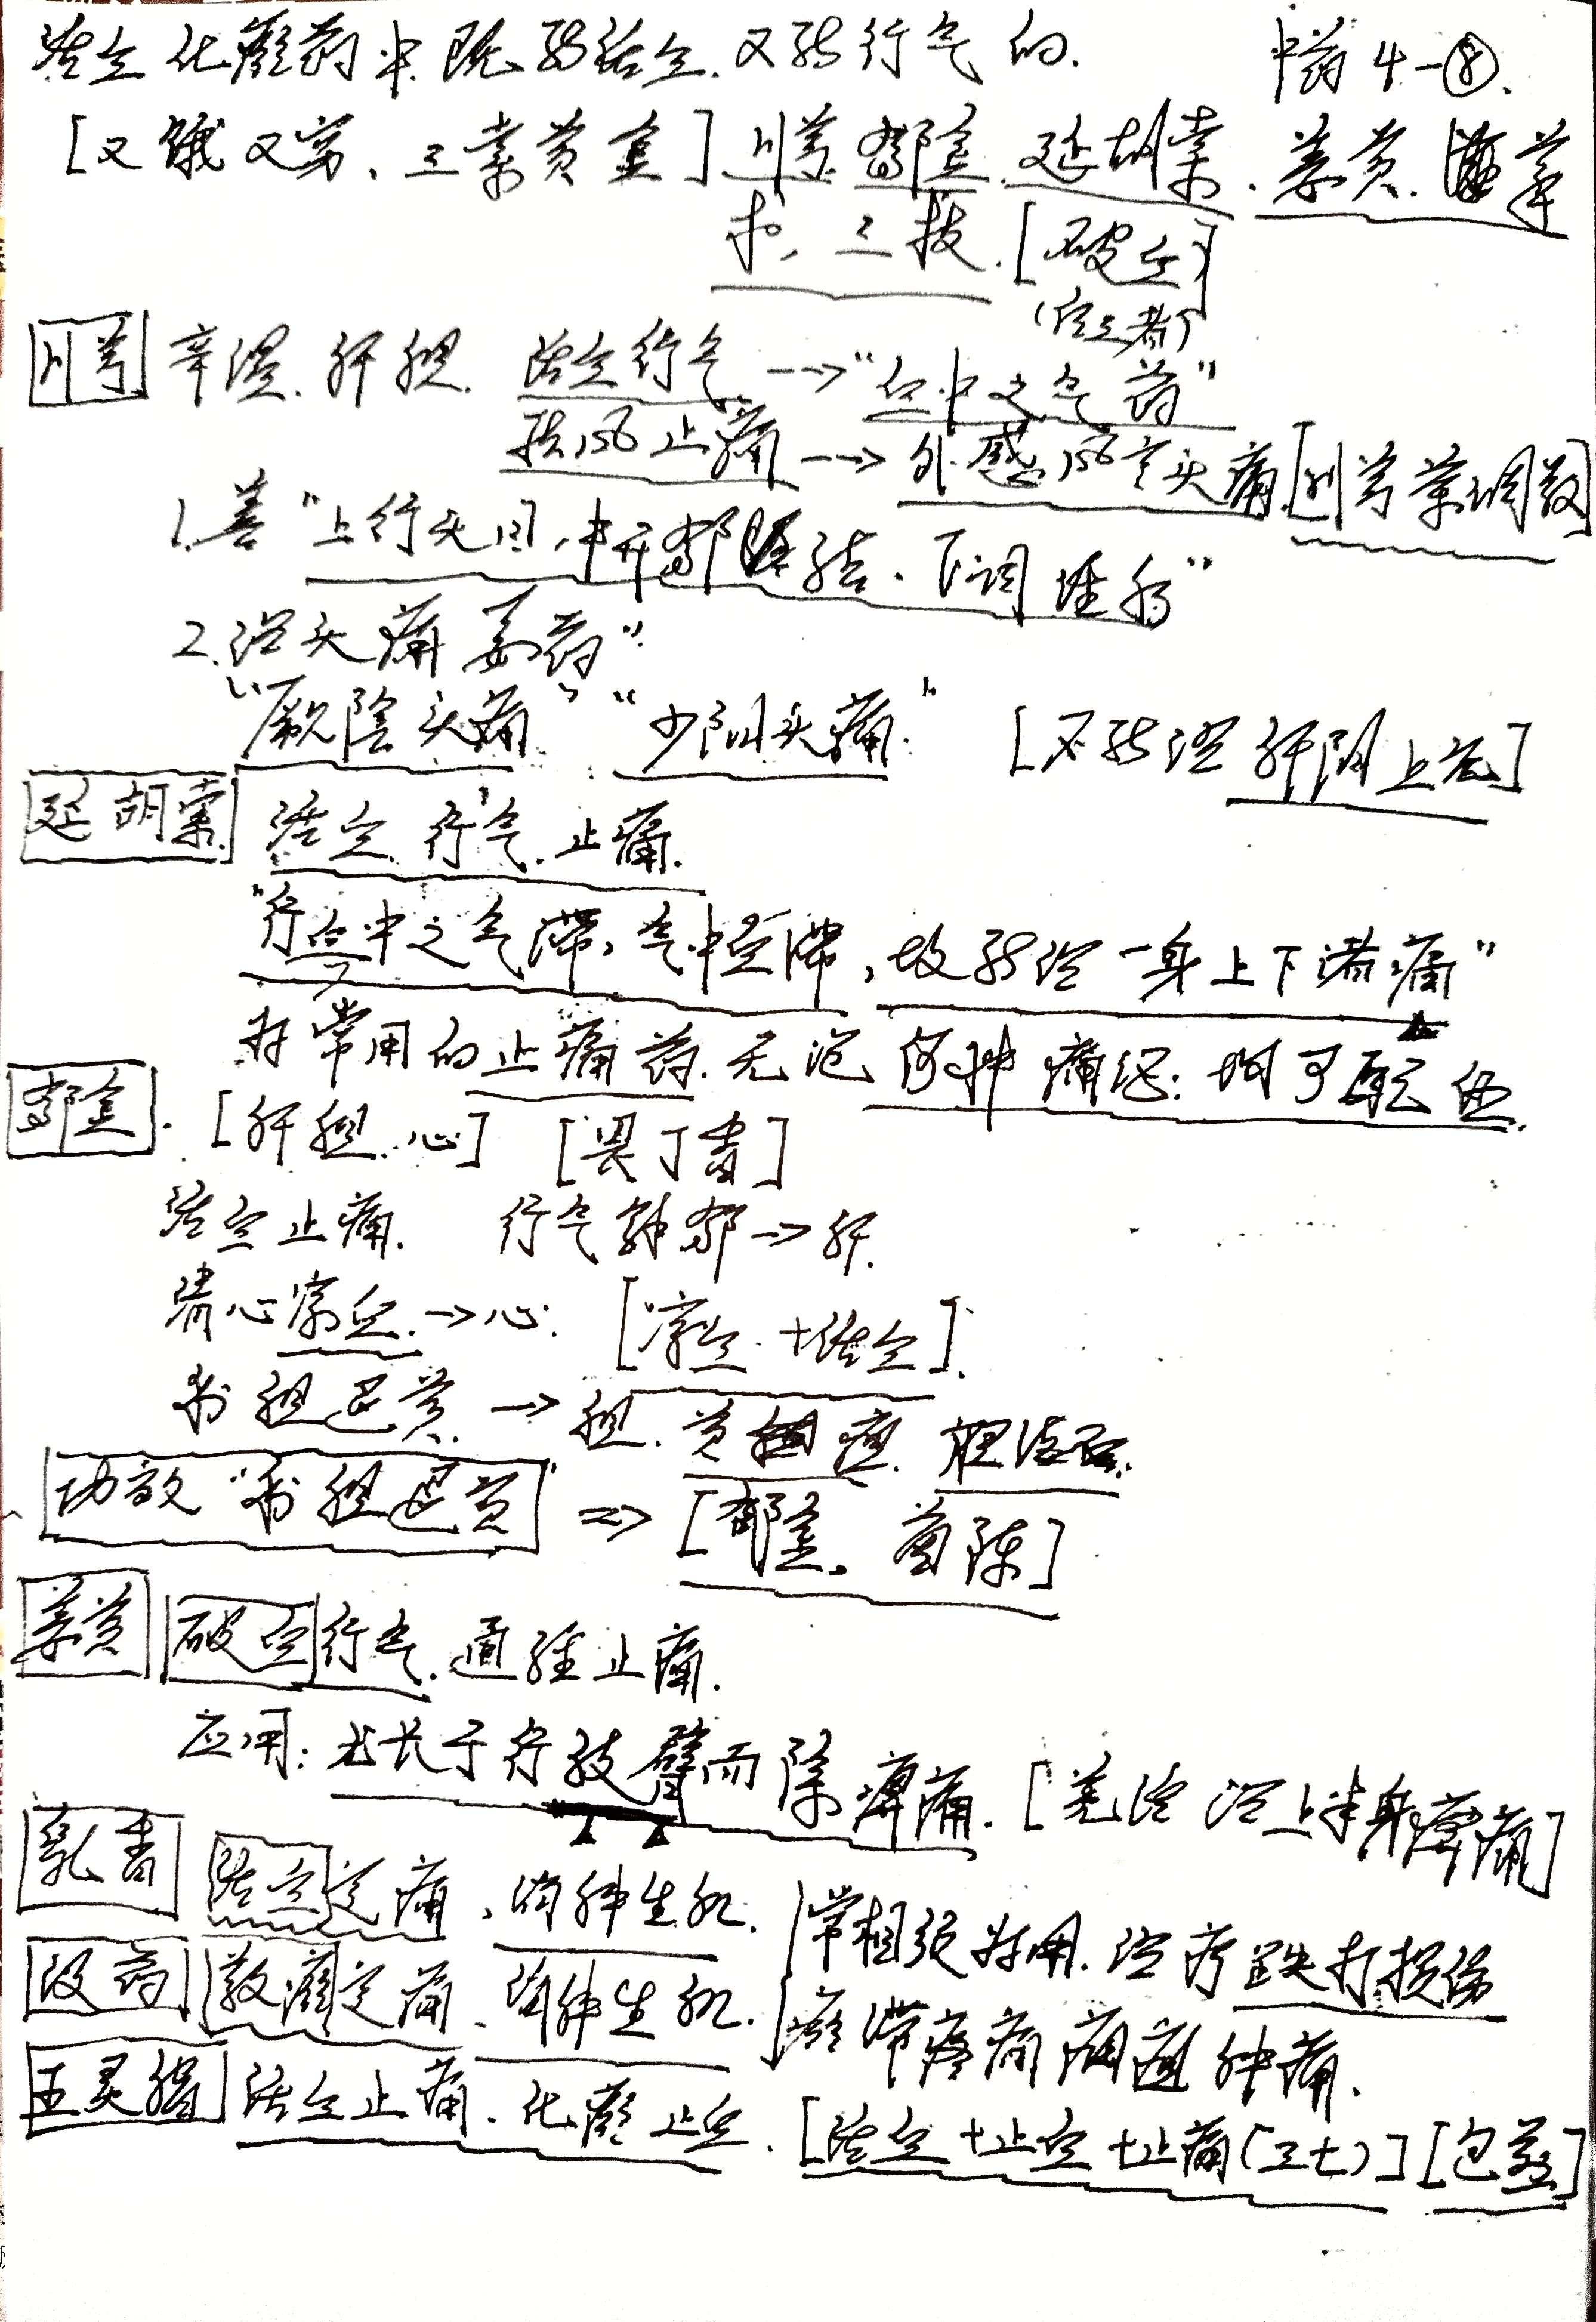 活血化瘀药中既能活血.又能行气的. 中药4-⑧.
[又饿又穷、三索黄金] 川芎.郁金.延胡索.姜黄.莪
术、三棱.[破血]
川芎 辛温.肝胆. 活血行气→"血中之气药"
祛风止痛→外感风寒头痛.[川芎茶调散]
1.善"上行头目,中开郁结.下调经水"
2.治头痛要药"
"厥阴头痛""少阳头痛." [不能治肝阳上亢]
延胡索 活血.行气.止痛.
"行血中之气滞,气中血滞,故能治一身上下诸痛"
为常用的止痛药.无论何种痛证.均可配伍.
郁金.[肝胆.心] [畏丁香]
活血止痛. 行气解郁→肝.
清心凉血.→心. [凉血+活血].
利胆退黄.→胆.黄疸.胆结石.
功效"利胆退黄"⇒[郁金、茵陈]
姜黄 破血行气.通经止痛.
应用:尤长于行肢臂而除痹痛.[羌活治上半身痹痛]
乳香 活血定痛、消肿生肌. 常相须为用.治疗跌打损伤
没药 散瘀定痛、消肿生肌. 瘀滞疼痛 疮疽肿痛.
五灵脂 活血止痛.化瘀止血.[活血+止血+止痛(三七)][包煎]